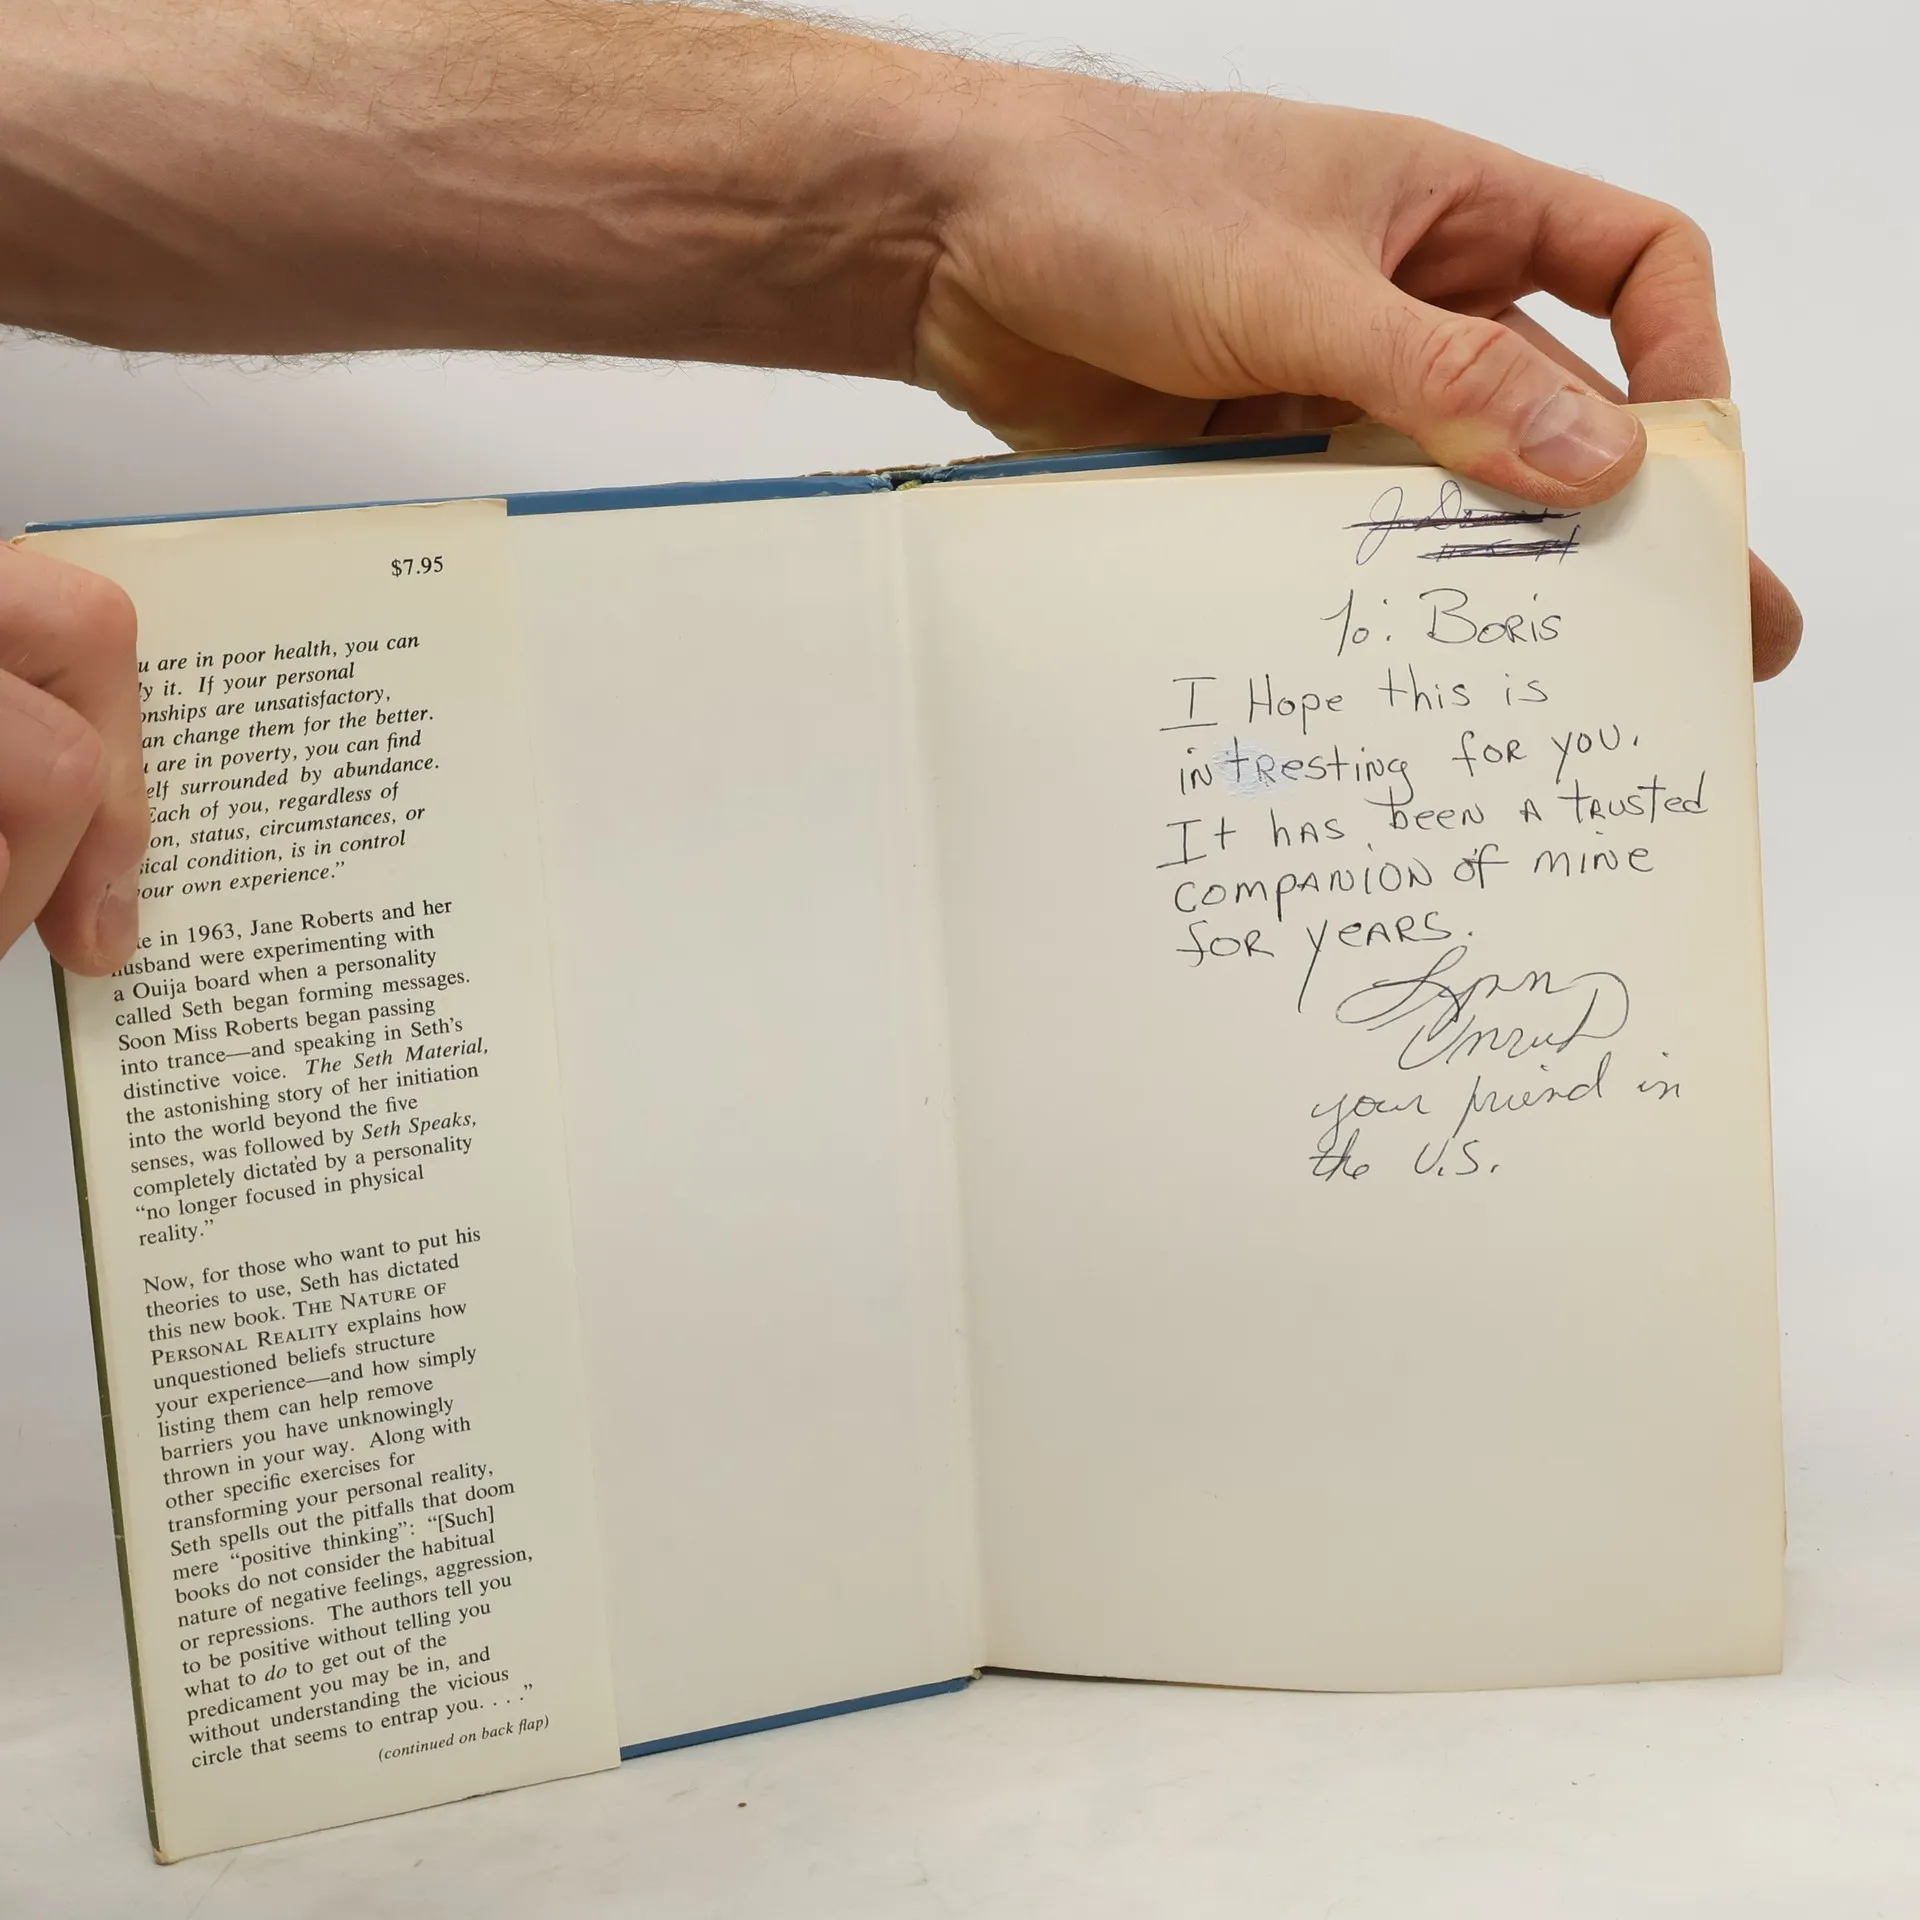 $7.95
u are in poor health, you can
ly it. If your personal
onships are unsatisfactory,
an change them for the better.
u are in poverty, you can find
elf surrounded by abundance.
Each of you, regardless of
on, status, circumstances, or
sical condition, is in control
your own experience.”
te in 1963, Jane Roberts and her
husband were experimenting with
a Ouija board when a personality
called Seth began forming messages.
Soon Miss Roberts began passing
into trance—and speaking in Seth’s
distinctive voice. The Seth Material,
the astonishing story of her initiation
into the world beyond the five
senses, was followed by Seth Speaks,
completely dictated by a personality
“no longer focused in physical
reality.”
Now, for those who want to put his
theories to use, Seth has dictated
this new book. THE NATURE OF
PERSONAL REALITY explains how
unquestioned beliefs structure
your experience—and how simply
listing them can help remove
barriers you have unknowingly
thrown in your way. Along with
other specific exercises for
transforming your personal reality,
Seth spells out the pitfalls that doom
mere “positive thinking”: “[Such]
books do not consider the habitual
nature of negative feelings, aggression,
or repressions. The authors tell you
to be positive without telling you
what to do to get out of the
predicament you may be in, and
without understanding the vicious
circle that seems to entrap you. . . .”
(continued on back flap)
To: Boris
I Hope this is
intresting for you.
It has been a trusted
companion of mine
for years.
Lynn
Unruh
your friend in
the U.S.